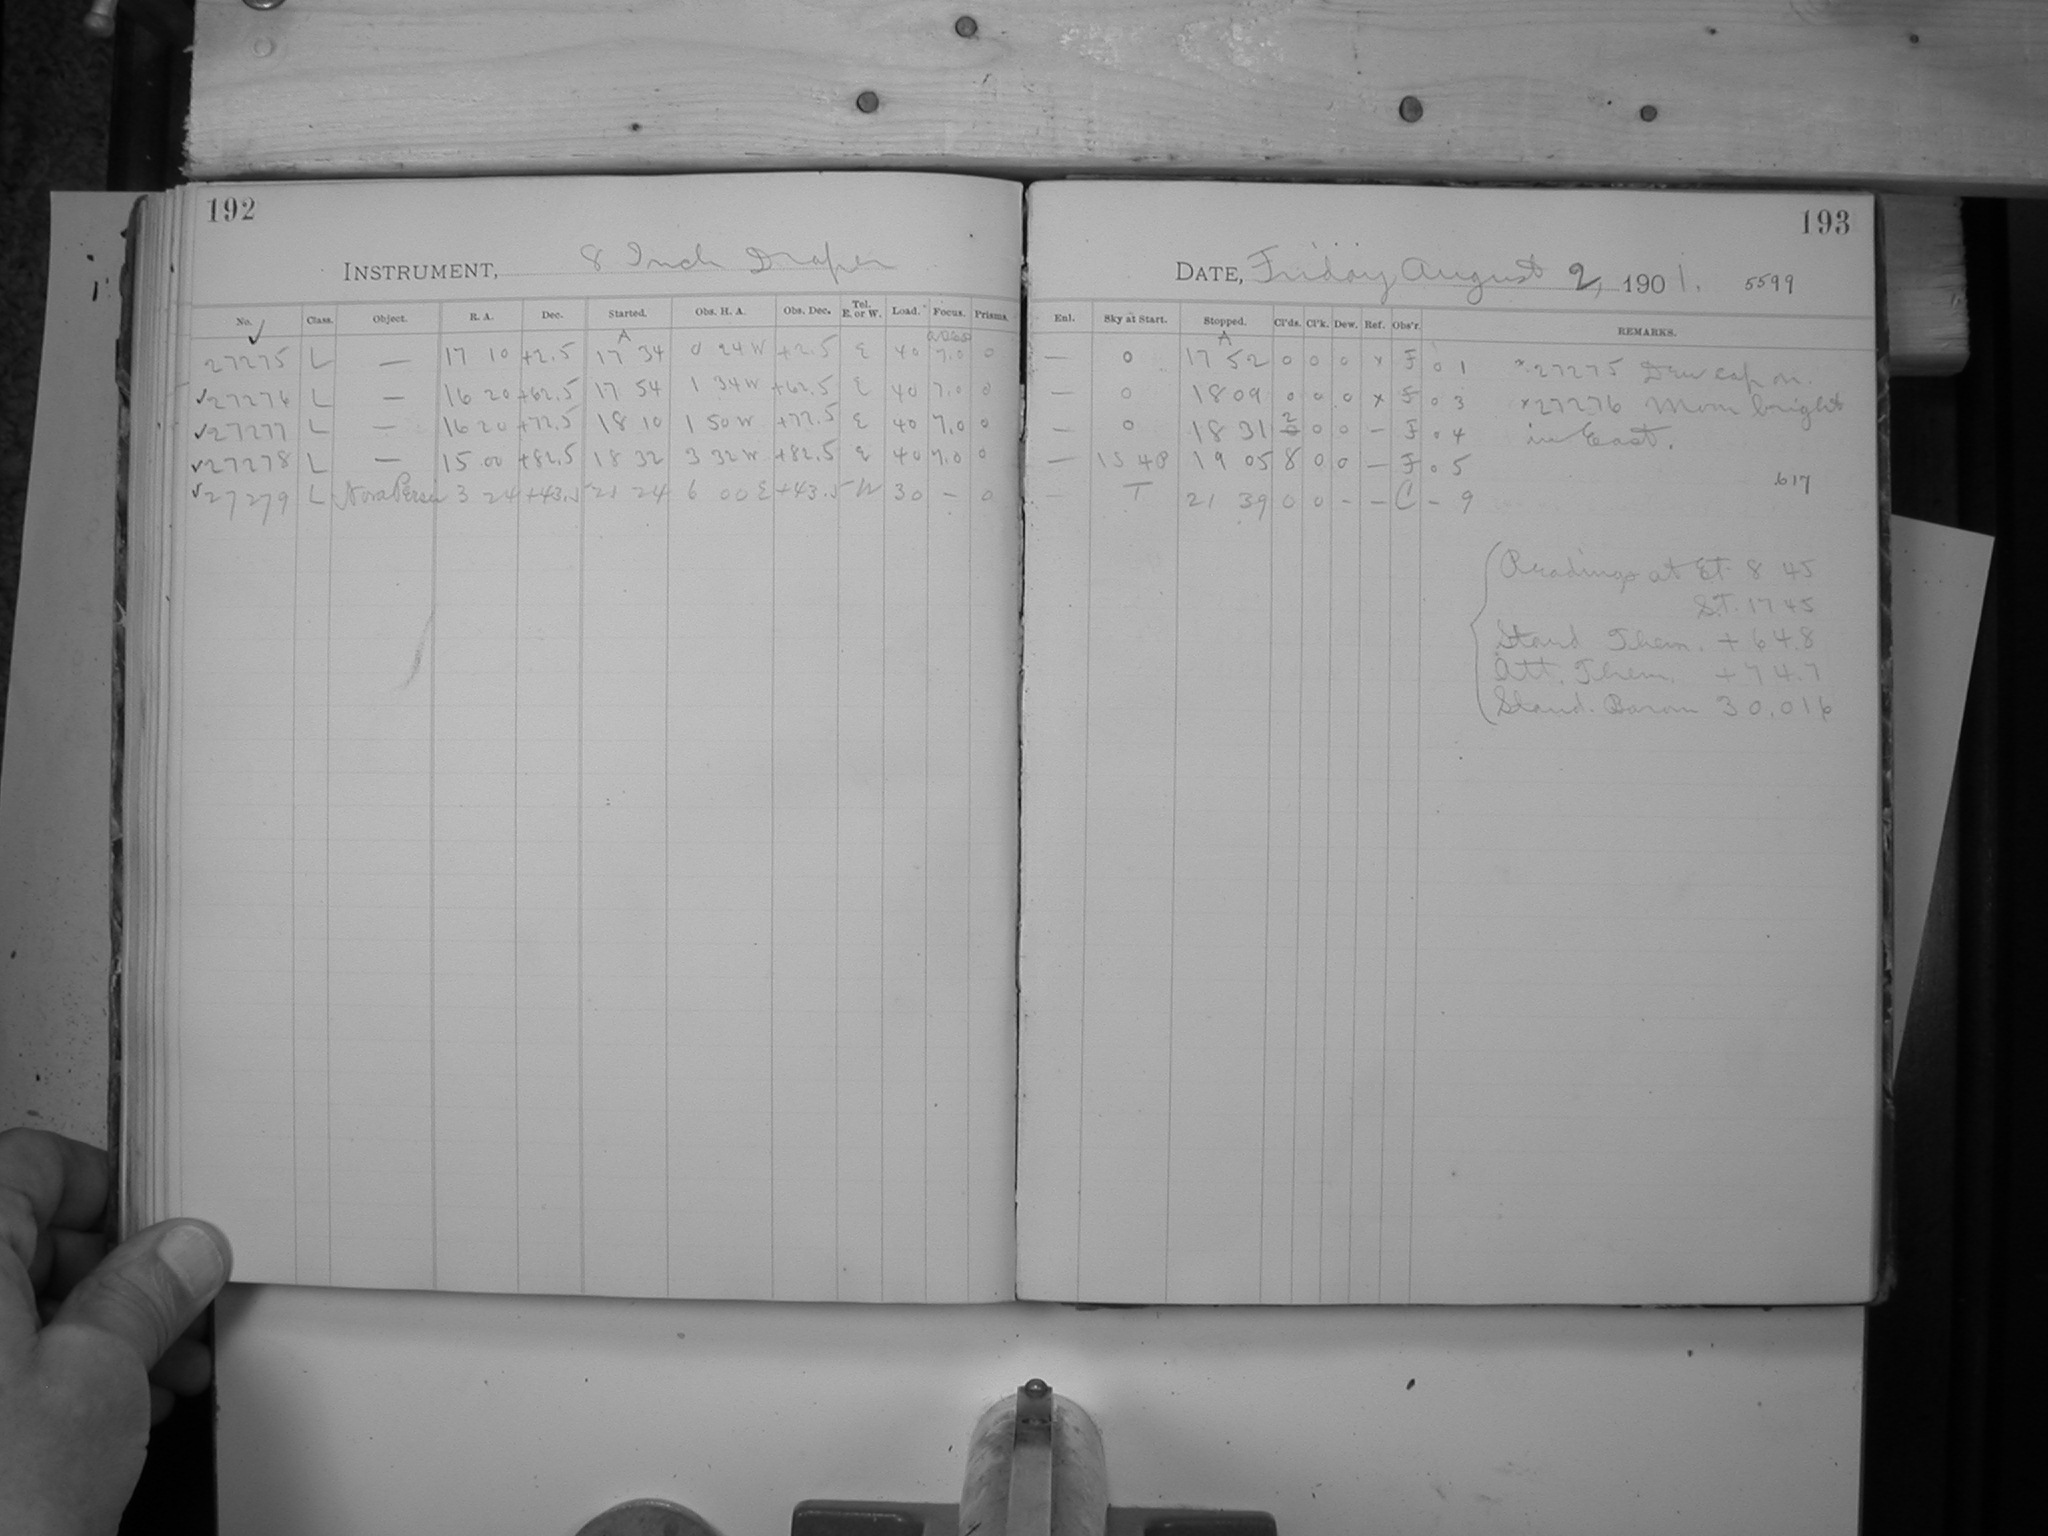 192
INSTRUMENT, 8 Inch Draper
No. Class. Object. R. A. Dec. Started. Obs. H. A. Obs. Dec. Tel. E. or W. Load. Focus. Prisms.
✓
A
27275 L — 17 10 +2.5 17 34 0 24 W +2.5 E 40 7.0 0
✓27276 L — 16 20 +62.5 17 54 1 34 W +62.5 E 40 7.0 0
✓27277 L — 16 20 +72.5 18 10 1 50 W +72.5 E 40 7.0 0
✓27278 L — 15 00 +82.5 18 32 3 32 W +82.5 E 40 7.0 0
✓27279 L Nova Persei 3 24 +43.5 21 24 6 00 E +43.5 W 30 — 0
193
DATE, Friday August 2, 1901. 5599
Enl. Sky at Start. Stopped. Cl'ds. Cl'k. Dew. Ref. Obs'r. REMARKS.
A
— 0 17 52 0 0 0 x F 0 1 x27275 Dew cap on.
— 0 18 09 0 0 0 x F 0 3 x27276 Moon bright
— 0 18 31 2 0 0 — F 0 4 in East.
— 15 48 19 05 8 0 0 — F 0 5
617
— T 21 39 0 0 - — C - 9
Readings at ET. 8 45
S.T. 17 45
Stand Therm. + 64.8
Att. Therm. + 74.7
Stand. Barom 30.016